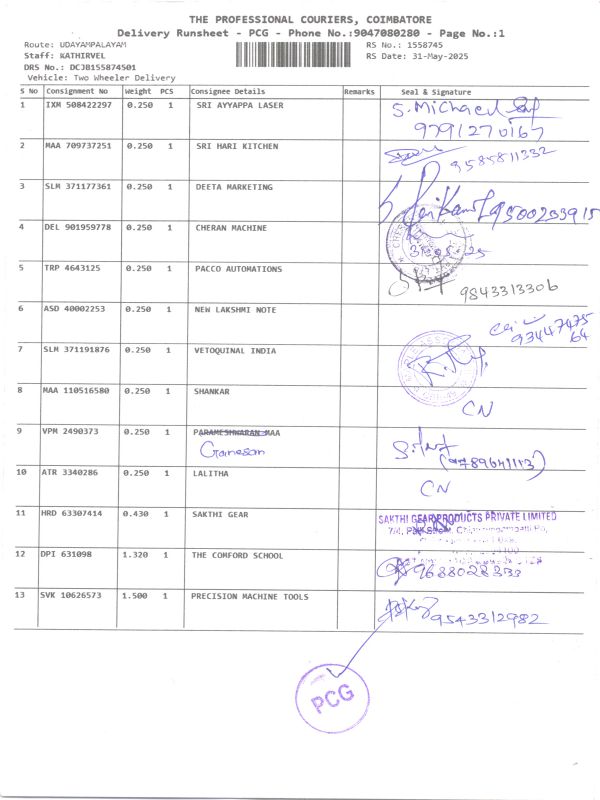 THE PROFESSIONAL COURIERS, COIMBATORE
Delivery Runsheet - PCG - Phone No.:9047080280 - Page No.:1
Route: UDAYAMPALAYAM
RS No.: 1558745
Staff: KATHIRVEL
RS Date: 31-May-2025
DRS No.: DCJB155874501
Vehicle: Two Wheeler Delivery
S No Consignment No Weight PCS Consignee Details Remarks Seal & Signature
1 IXM 508422297 0.250 1 SRI AYYAPPA LASER S. Michael
9791270167
2 MAA 709737251 0.250 1 SRI HARI KITCHEN
9585811332
3 SLM 371177361 0.250 1 DEETA MARKETING
9500233915
4 DEL 901959778 0.250 1 CHERAN MACHINE
31-05-25
5 TRP 4643125 0.250 1 PACCO AUTOMATIONS
9843313306
6 ASD 40002253 0.250 1 NEW LAKSHMI NOTE
93447475
64
7 SLM 371191876 0.250 1 VETOQUINAL INDIA
8 MAA 110516580 0.250 1 SHANKAR
CN
9 VPM 2490373 0.250 1 PARAMESHWARAN MAA
Ganesan
(9789641113)
10 ATR 3340286 0.250 1 LALITHA
CN
11 HRD 63307414 0.430 1 SAKTHI GEAR SAKTHI GEAR PRODUCTS PRIVATE LIMITED
12 DPI 631098 1.320 1 THE COMFORD SCHOOL
9688028333
13 SVK 10626573 1.500 1 PRECISION MACHINE TOOLS
9543312982
PCG